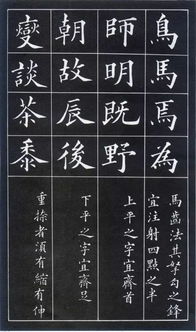 鳥馬焉為
馬齒法其拏勾之鋒
宜注射四點之半
師明既野
上平之字宜齊首
朝故辰後
下平之字宜齊足
變談茶黍
重捺者須有縮有伸